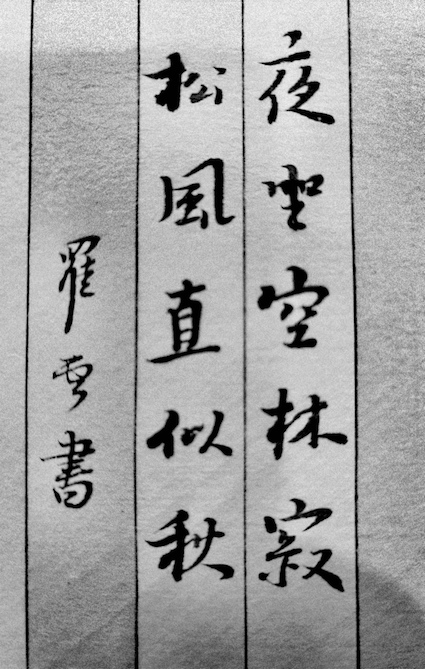 夜坐空林寂
松風直似秋
瞿雲書